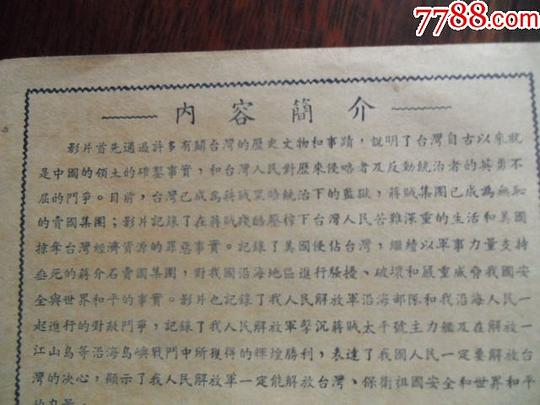 7788.com
中国收藏热线
内容簡介
影片首先通过許多有關台灣的歷史文物和事蹟，說明了台灣自古以來就
是中國的領土的確鑿事實，和台灣人民對歷來侵略者及反動統治者的英勇不
屈的鬥爭。目前，台灣已成為蔣賊黑暗統治下的監獄，蔣賊集團已成為無恥
的賣國集團；影片記錄了在蔣賊殘酷壓榨下台灣人民苦難深重的生活和美國
掠奪台灣經濟資源的罪惡事實。記錄了美國侵佔台灣，繼續以軍事力量支持
無恥的蔣介石賣國集團，對我國沿海地區進行騷擾、破壞和嚴重威脅我國安
全與世界和平的事實。影片也記錄了我人民解放軍沿海部隊和我沿海人民一
起進行的對敵鬥爭，記錄了我人民解放軍擊沉蔣賊太平號主力艦及在解放一
江山島等沿海島嶼戰鬥中所獲得的輝煌勝利，表達了我國人民一定要解放台
灣的决心，顯示了我人民解放軍一定能解放台灣、保衛祖國安全和世界和平